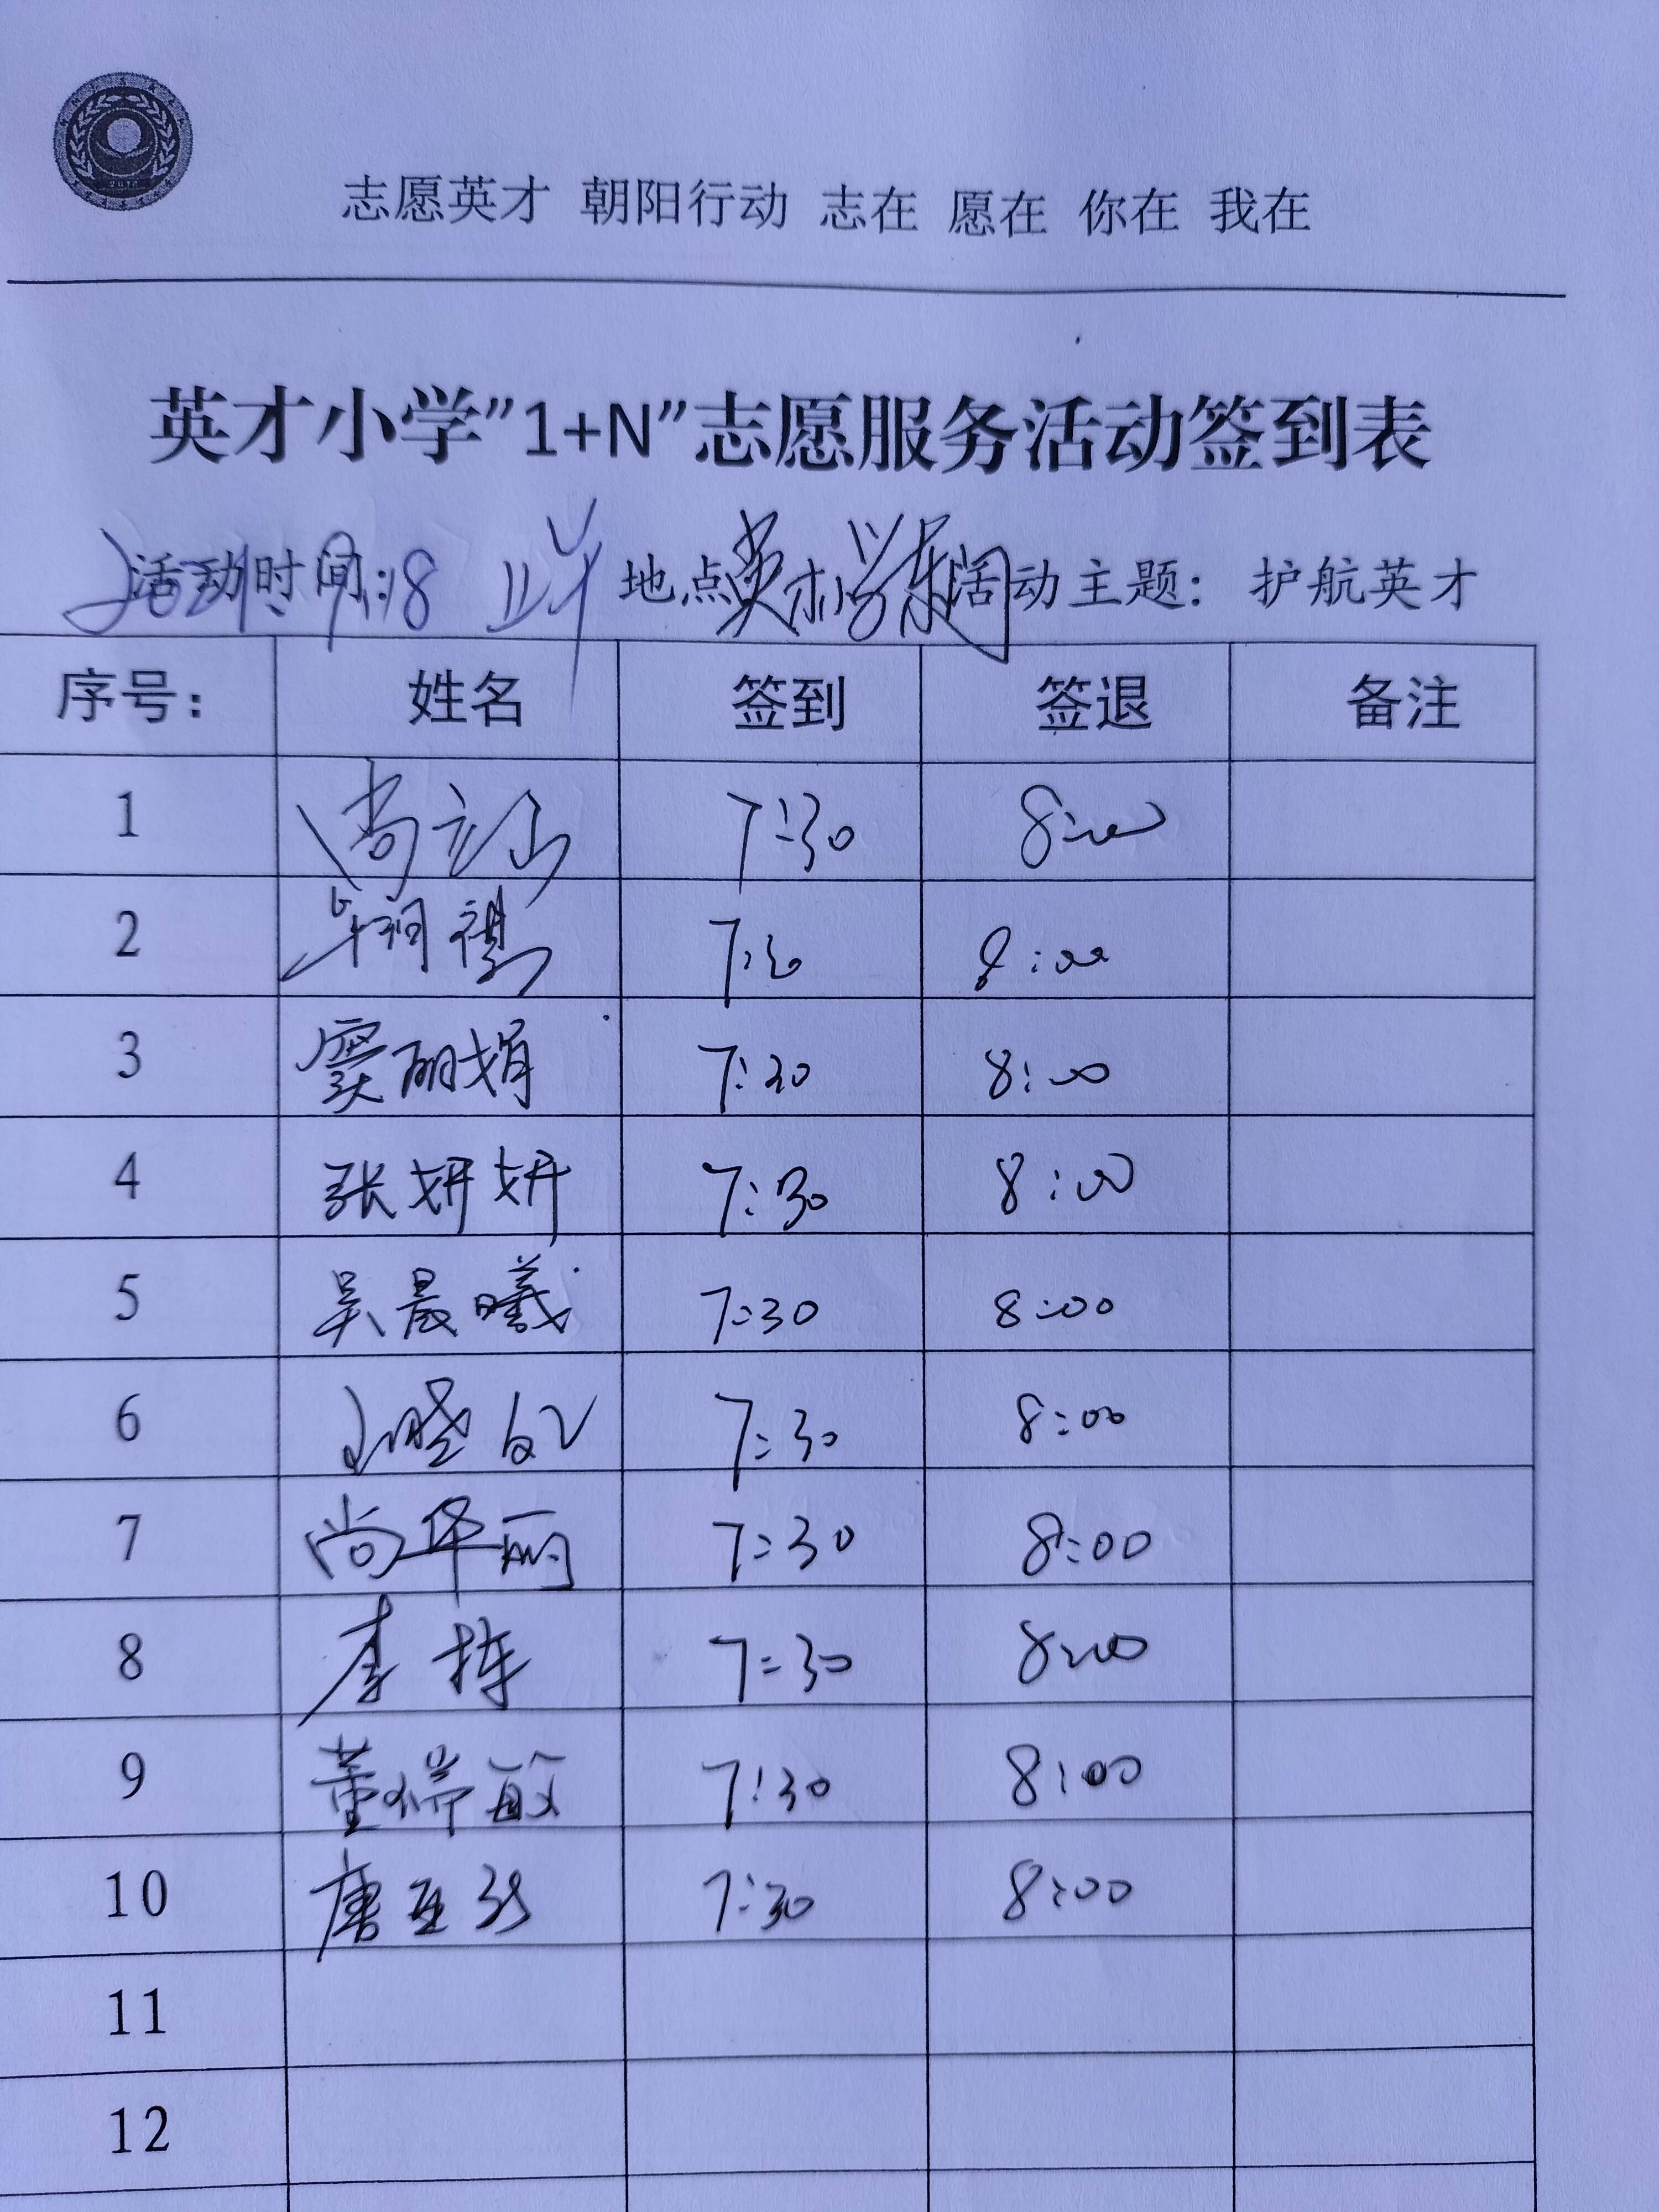 志愿英才 朝阳行动 志在 愿在 你在 我在
英才小学"1+N"志愿服务活动签到表
活动时间: 2021.9.18 地点 英才小学东门 活动主题: 护航英才
序号: 姓名 签到 签退 备注
1 7:30 8:00
2 7:30 8:00
3 窦丽娟 7:30 8:00
4 张妍妍 7:30 8:00
5 吴晨曦 7:30 8:00
6 7:30 8:00
7 尚华丽 7:30 8:00
8 李栋 7:30 8:00
9 董瑞敏 7:30 8:00
10 唐亚 7:30 8:00
11
12